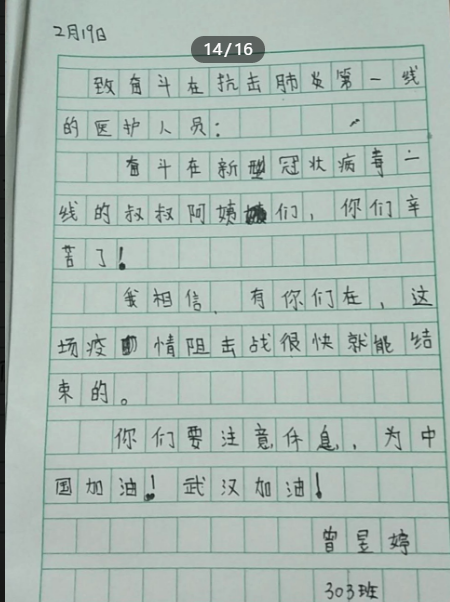 2月19日
14/16
致奋斗在抗击肺炎第一线
的医护人员：
奋斗在新型冠状病毒一
线的叔叔阿姨们，你们辛
苦了！
我相信，有你们在，这
场疫情阻击战很快就能结
束的。
你们要注意休息，为中
国加油！武汉加油！
曾昱婷
303班